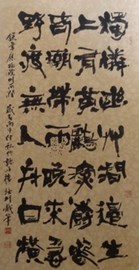 獨憐幽草澗邊生
上有黃鸝深樹鳴
春潮帶雨晚來急
野渡無人舟自橫